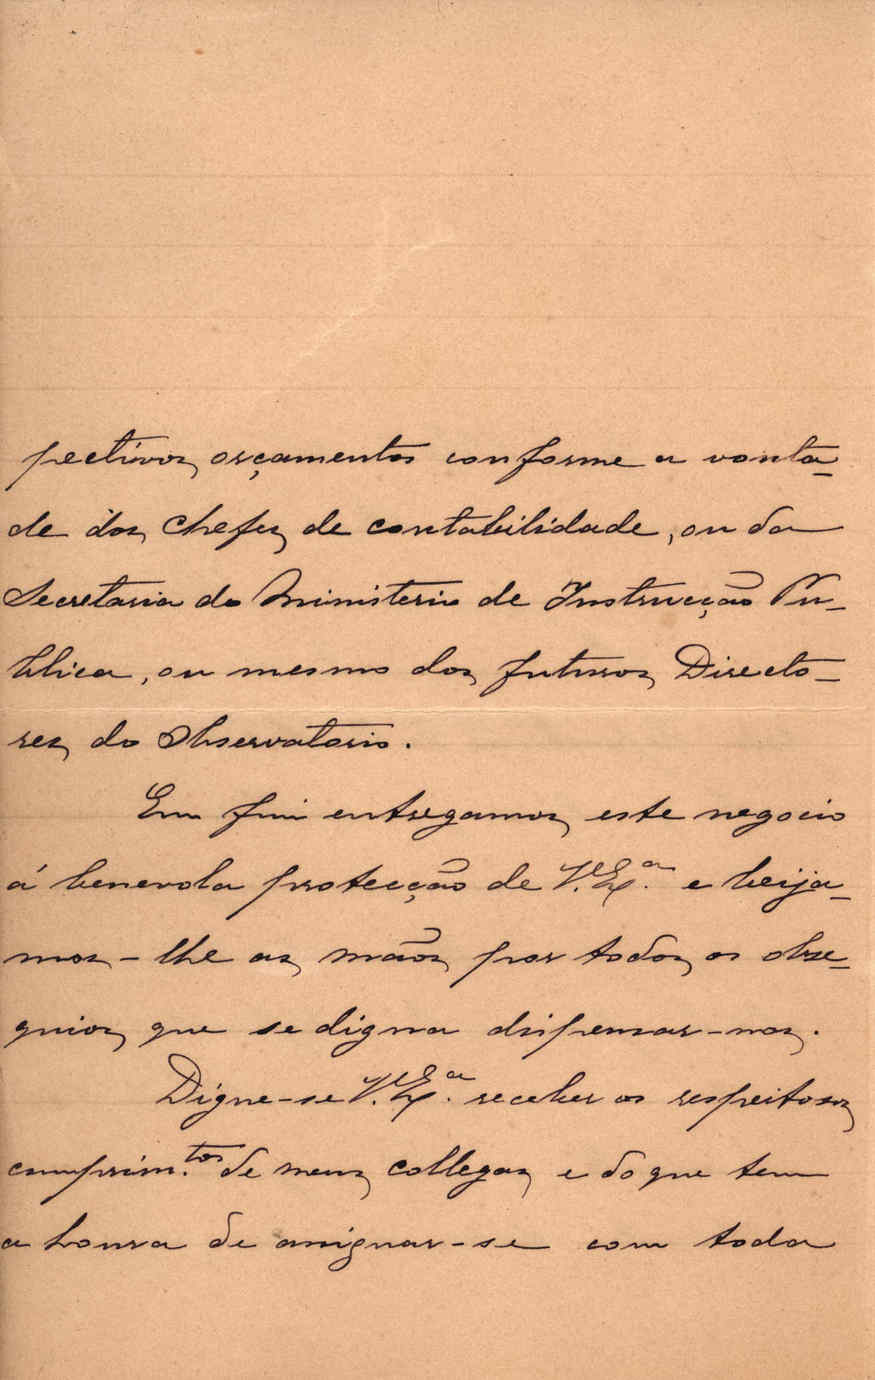 pectivos orçamentos conforme a vonta-
de dos Chefes de contabilidade, ou da
Secretaria do Ministerio de Instrucção Pu-
blica, ou mesmo dos futuros Directo-
res do Observatorio.
Em fim entregamos este negocio
á benevola protecção de V. Ex.ª e beija-
mos-lhe as mãos por todos os obse-
quios que se digna dispensar-nos.
Digne-se V. Ex.ª receber os respeitosos
cumprim.tos de meus collegas e do que tem
a honra de assignar-se com toda